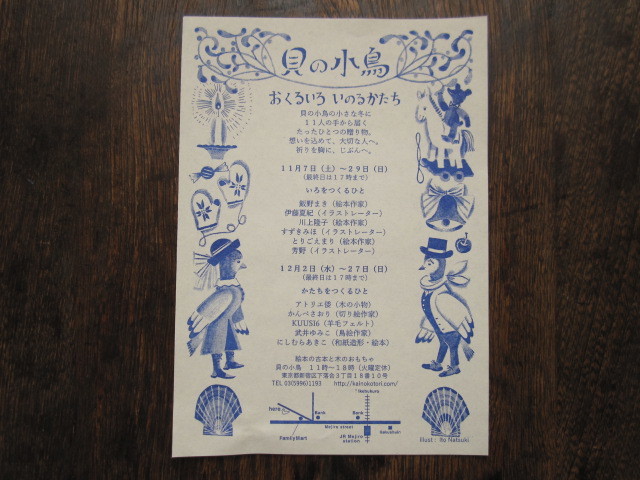 貝の小鳥
おくるいろ いのるかたち
貝の小鳥の小さな冬に
11人の手から届く
たったひとつの贈り物。
想いを込めて、大切な人へ。
祈りを胸に、じぶんへ。
11月7日（土）～29日（日）
（最終日は17時まで）
いろをつくるひと
飯野まき（絵本作家）
伊藤夏紀（イラストレーター）
川上隆子（絵本作家）
すずきみほ（イラストレーター）
とりごえまり（絵本作家）
芳野（イラストレーター）
12月2日（水）～27日（日）
（最終日は17時まで）
かたちをつくるひと
アトリエ倭（木の小物）
かんべさおり（切り絵作家）
KUUSI6（羊毛フェルト）
武井ゆみこ（鳥絵作家）
にしむらあきこ（和紙造形・絵本）
絵本の古本と木のおもちゃ
貝の小鳥 11時～18時（火曜定休）
東京都新宿区下落合3丁目18番10号
TEL 03(5996)1193 http://kainokotori.com/
↑Ikebukuro
here
Bank
Bank
Mejiro street
FamilyMart
JR Mejiro
station
Gakushuin
illust : Ito Natsuki